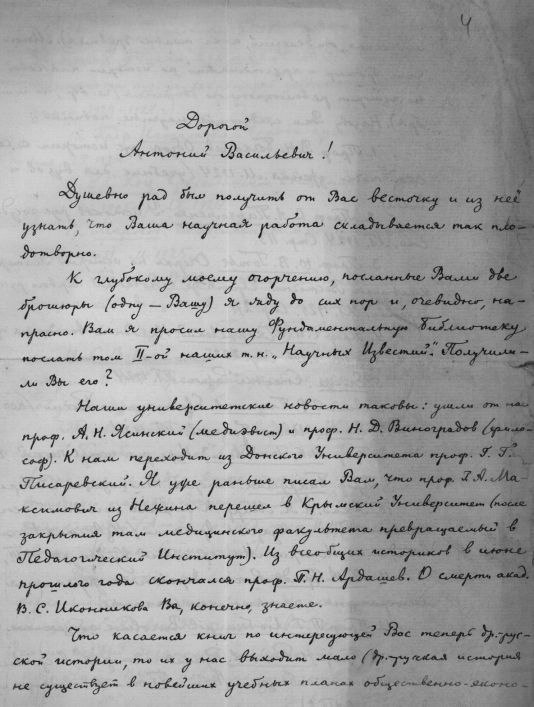 4
Дорогой
Антоний Васильевич!
Душевно рад был получить от Вас весточку и из неё
узнать, что Ваша научная работа складывается так пло-
дотворно.
К глубокому моему огорчению, посланные Вами две
брошюры (одну — Вашу) я жду до сих пор и, очевидно, на-
прасно. Вам я просил нашу Фундаментальную библиотеку
послать том II-ой наших т.н. „Научных Известий". Получили-
ли Вы его?
Наши университетские новости таковы: ушли от на
проф. А. Н. Ясинский (медиэвист) и проф. Н. Д. Виноградов (фило-
соф). К нам переходит из Донского Университета проф. Г. Г.
Писаревский. Я уже раньше писал Вам, что проф. Г. А. Ма-
ксимович из Нежина перешел в Крымский Университет (после
закрытия там медицинского факультета превращаемый в
Педагогический Институт). Из всеобщих историков в июне
прошлого года скончался проф. П. Н. Ардашев. О смерти акад.
В. С. Иконникова Вы, конечно, знаете.
Что касается книг по интересующей Вас теперь др.-рус-
ской истории, то их у нас выходит мало (др.-русская история
не существует в новейших учебных планах общественно-эконо-